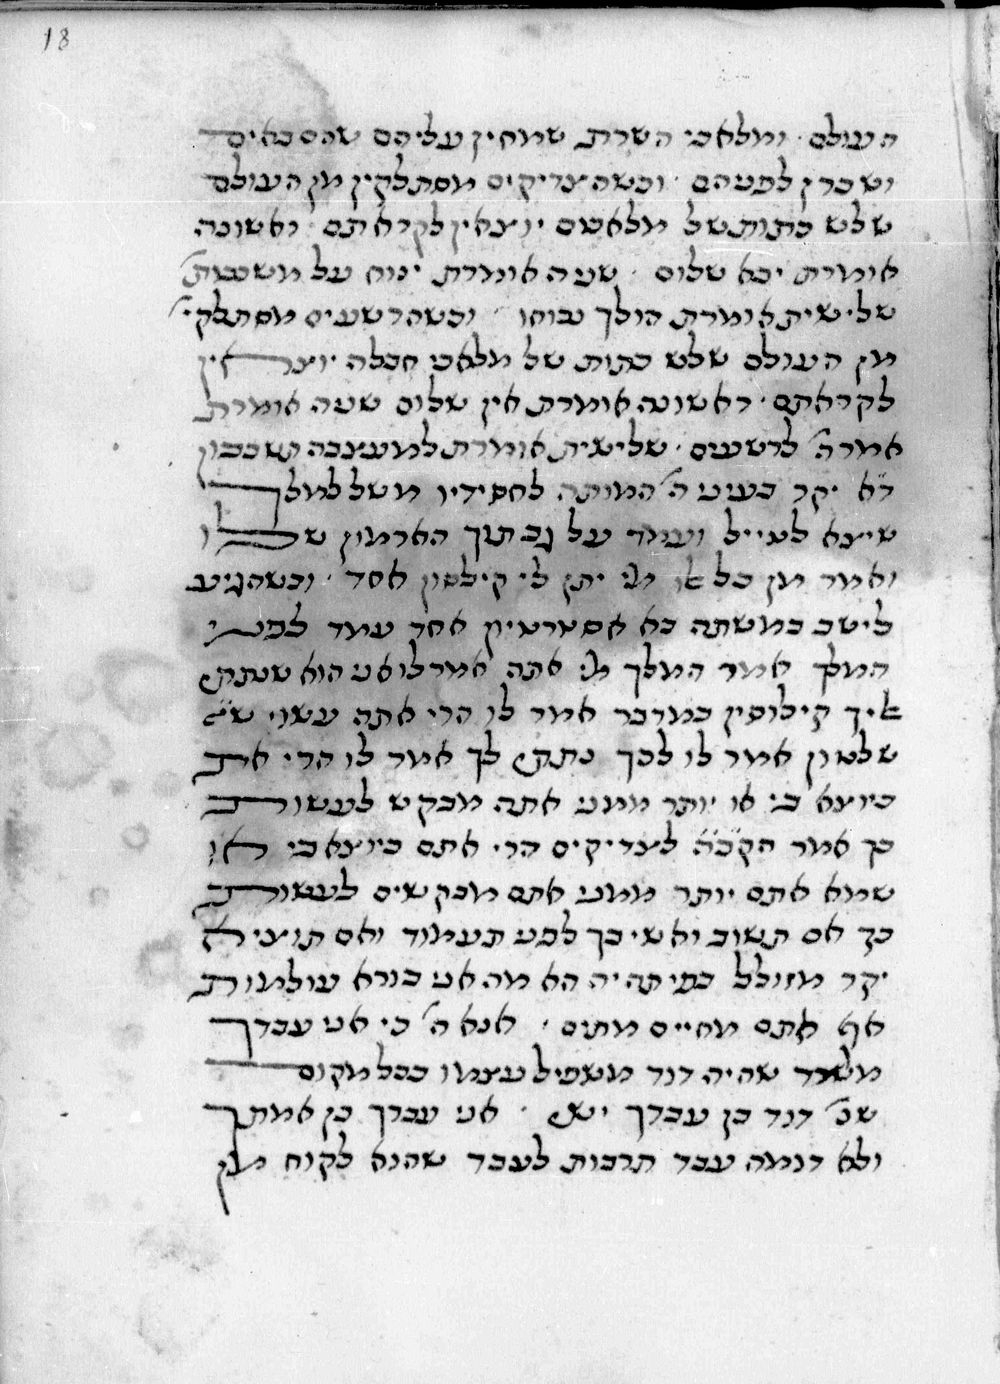 18
העולם · ומלאכי השרת שמחין עליהם שהם באים
ושכרן לפניהם · וכשהצדיקים מסתלקין מן העולם
שלש כתות של מלאכים יוצאין לקראתם · ראשונה
אומרת יבא שלום · שניה אומרת ינוח על משכבות'
שלישית אומרת הולך נכוחו · וכשהרשעים מסתלקי'
מן העולם שלש כתות של מלאכי חבלה יוצאין
לקראתם · ראשונה אומרת אין שלום שניה אומרת
אמר ה' לרשעים · שלישית אומרת למעצבה תשכבון
ד"א יקר בעיני ה' המותה לחסידיו משל למלך
שיצא לטייל ועמד על תוך הארמון שלו
ואמר מן כל מי יתן לי קילוסין אחד · וכשהגיע
לישב במשתה בא אחד עמד לפני
המלך אמר המלך מי אתה אמר לו אני הוא שנתתי
ליך קילוסין במדבר אמר לו הרי אתה עשוי
שלטון אמר לו לכך נתתי לך אמר לו הרי את
כיוצא בי או יותר ממני אתה מבקש לעשות
כך אמר הקב"ה לצדיקים הרי אתם כיוצא בי או
שמא אתם יותר ממני אתם מבקשים לעשות
כך אם תשוב ואשיבך לפני תעמוד ואם תוציא
יקר מזולל כפי תהיה הא מה אני בורא עולמות
אף אתם מחיים מתים · אנא ה' כי אני עבדך
מלמד שהיה דוד משפיל עצמו בכל מקום
שנ' דוד בן עבדך ישי · אני עבדך בן אמתך
ולא דומה עבד תרבות לעבד שהוא לקוח מן